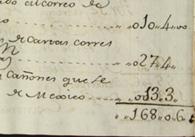 al correo de
..010.4..00
de Cartas corres
..027.4..
Cañones que se
de Mexico... ..013.3..
..0168.,0.,6